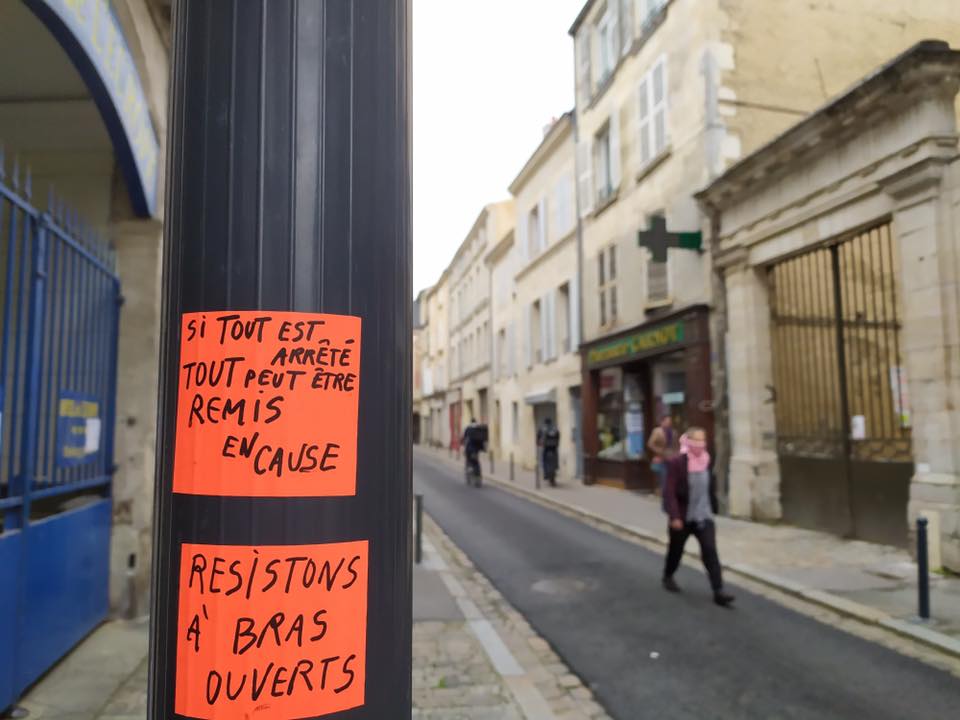 Si TOUT EST
ARRÊTÉ
TOUT PEUT ÊTRE
REMIS
EN CAUSE
RESiSTONS
A' BRAS
OUVERTS